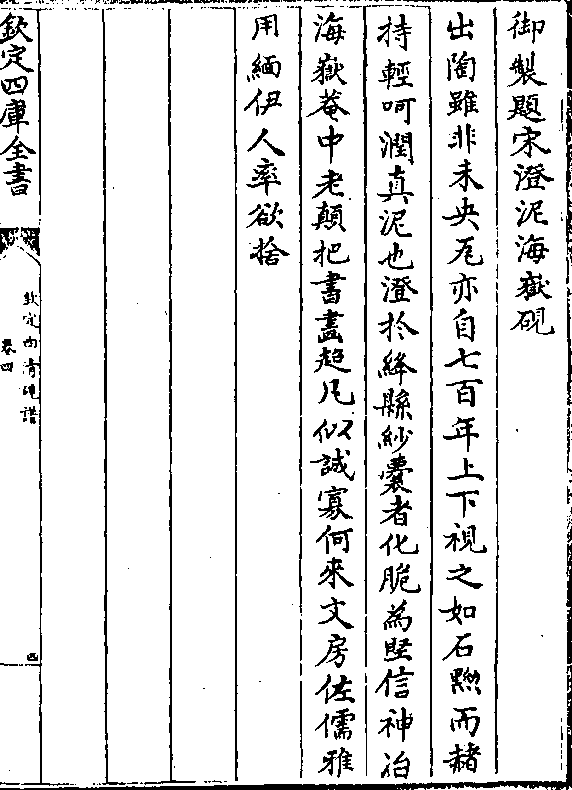 御製題宋澄泥海嶽硯
出陶雖非未央瓦亦自七百年上下視之如石黝而赭
持輕呵潤真泥也澄於絳縣紗囊者化脆為堅信神冶
海嶽菴中老顛把書畫超凡似誠寡何來文房佐儒雅
用緬伊人率欲捨
欽定四庫全書
欽定西清硯譜
卷四
四